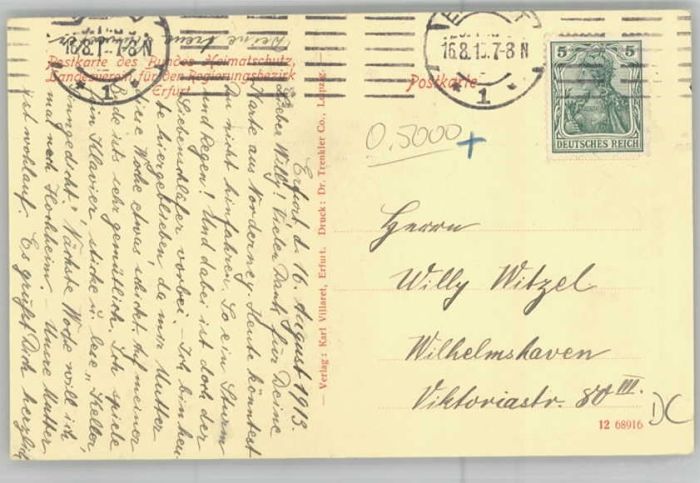 Postkarte des Bundes Heimatschutz,
Landesverein für den Regierungsbezirk
Erfurt
Postkarte
16.8.13.7-8N
* 1 *
16.8.13.7-8N
* 1 *
5 5
DEUTSCHES REICH
0.5000 +
Erfurt d. 16. August 1913.
Lieber Willy! Vielen Dank für Deine
Karte aus Norderney. Heute könntest
Du nicht hinfahren. So ein Sturm
und Regen! Und dabei ist doch der
vorbei. Ich bin heu
te hiergeblieben da mir Mutter
diese Woche etwas schickt. Auf meiner
ists sehr gemütlich. Ich spiele
Klavier, sticke u. lese "Keller,
". Nächste Woche will ich
mal nach Hochheim. Unsre Mutter
ist wohlauf. Es grüßt Dich herzlich
Deine treue
— Verlag: Karl Villaret, Erfurt. Druck: Dr. Trenkler Co., Leipzig. —
Herrn
Willy Witzel
Wilhelmshaven
Viktoriastr. 80 III.
12 68916
DC